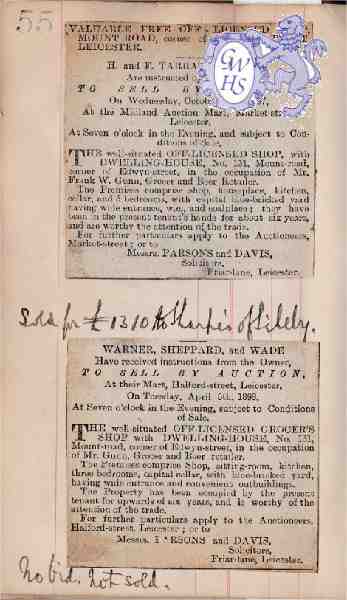 55
VALUABLE FREE OFF-LICENSED
MOUNT ROAD, corner of
LEICESTER.
GWHS
H. and F. TARRA
Are instructed
TO SELL BY
On Wednesday, Octob
At the Midland Auction Mart, Market-st
Leicester,
At Seven o'clock in the Evening, and subject to Con-
ditions of Sale,
THE well-situated OFF-LICENSED SHOP, with
DWELLING-HOUSE, No. 131, Mount-road,
corner of Edwyn-street, in the occupation of Mr.
Frank W. Gunn, Grocer and Beer Retailer.
The Premises comprise shop, houseplace, kitchen,
cellar, and 3 bedrooms, with capital blue-bricked yard
having wide entrance, w.c., and ashplace; they have
been in the present tenant's hands for about six years,
and are worthy the attention of the trade.
For further particulars apply to the Auctioneers,
Market-street; or to
Messrs. PARSONS and DAVIS,
Solicitors,
Friar-lane, Leicester.
Sold for £1310 to Sharpes of Sileby.
WARNER, SHEPPARD, and WADE
Have received instructions from the Owner,
TO SELL BY AUCTION,
At their Mart, Halford-street, Leicester,
On Tuesday, April 5th, 1898,
At Seven o'clock in the Evening, subject to Conditions
of Sale.
THE well situated OFF-LICENSED GROCER'S
SHOP with DWELLING-HOUSE, No. 131,
Mount-road, corner of Edwyn-street, in the occupation
of Mr. Gunn, Grocer and Beer retailer.
The Premises comprise Shop, sitting-room, kitchen,
three bedrooms, capital cellar, with blue-bricked yard,
having wide entrance and convenient outbuildings.
The Property has been occupied by the present
tenant for upwards of six years, and is worthy of the
attention of the trade.
For further particulars apply to the Auctioneers,
Halford-street, Leicester; or to
Messrs. PARSONS and DAVIS,
Solicitors,
Friar-lane, Leicester.
No bid. Not sold.